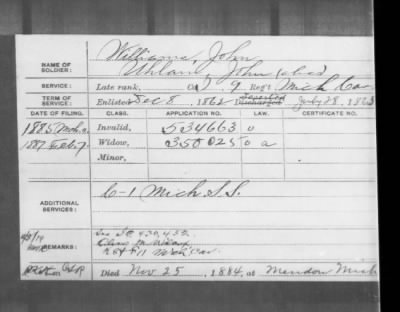 NAME OF SOLDIER: Williams, John
Uhland, John (alias)
SERVICE: Late rank, Co. 9 Reg't Mich Cav
TERM OF SERVICE: Enlisted Dec 8, 1862 Discharged July 28, 1863
DATE OF FILING. CLASS. APPLICATION NO. LAW. CERTIFICATE NO.
1885 Mch Invalid, 534663 o
1887 Feb 7 Widow, 350025 o a
Minor,
ADDITIONAL SERVICES: C-1 Mich S.S.
REMARKS: See 430,432
Died Nov 25, 1884, at Mendon Mich